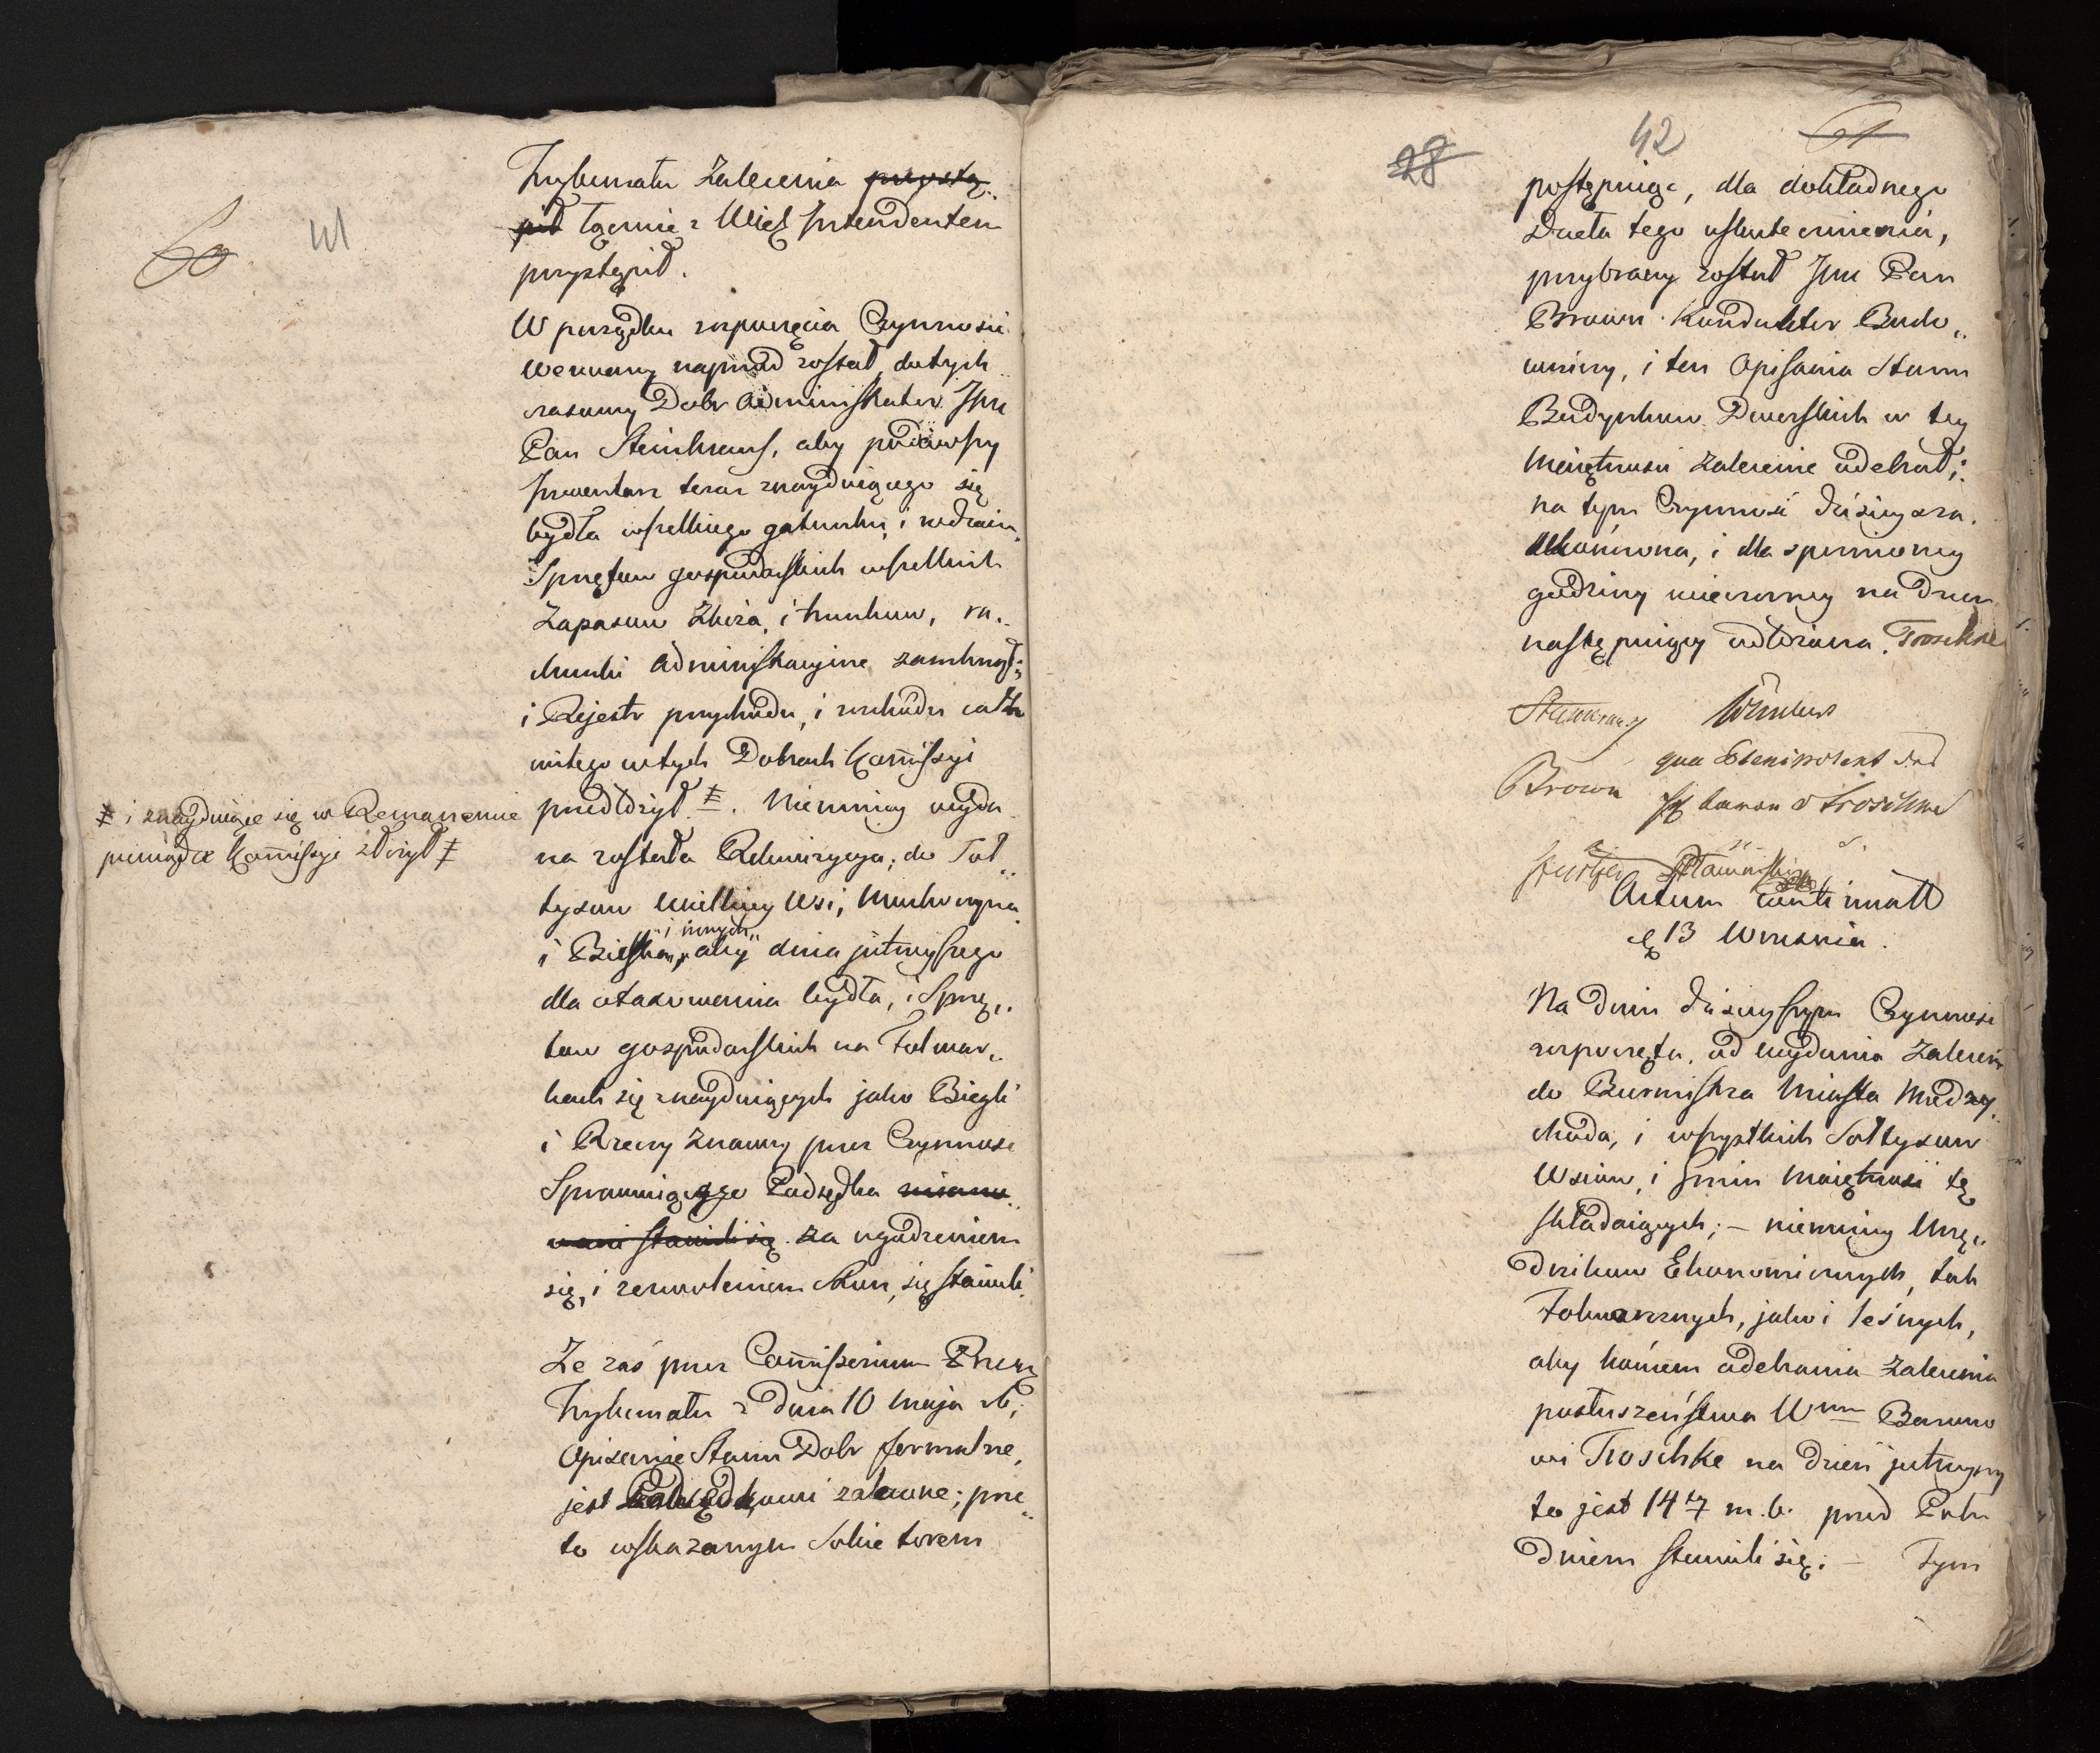 60 41
Trybunału Zalecenia przystą„
pił łącznie z Wielb Intendentem
przystąpił.
W porządku rozpoczęcia Czynności
wezwany naprzód został dotych
czasowy Dobr Administrator Jmć
Pan Steinkrauss, aby podawszy
Inwentarz teraz znayduiącego się
bydła wszelkiego gatunku, i rodzaiu,
Sprzętow gospodarskich wszelkich
Zapasow Zboża, i trunkow, ra„
chunki Administracyine zamknął;
i Rejestr przychodu, i rozchodu całko
witego w tych Dobrach Kommissyi
przedłożył ‡. Niemniey wyda
‡ i znayduiące się w Remanencie
pieniądze Kommissyi złożył ‡
na została Rekwizycya; do Soł„
tysow Wielkiey Wsi, Muchocyna
„i innych„
i Bielska, aby dnia jutrzeyszego
dla otaxowania bydła, i Sprzę„
tow gospodarskich na Folwar„
kach się znayduiących jako Biegli
i Rzeczy Znawcy przez Czynność
Sprawuiącego Podsędka miano„
wani stawili się za ugodzeniem
się, i zezwoleniem Stron, się stawili.
Że zaś przez Commissorium Prześw
Trybunału z Dnia 10 Maja rb;
Opisanie Stanu Dobr formalne,
jest Podsędkowi zalecone; prze„
to wskazanym Sobie torem
28 42 61
postępuiąc, dla dokładnego
Dzieła tego uskutecznienia,
przybrany został Jmć Pan
Brown Kondukter Budo„
wniczy, i ten Opisania Stanu
Budynkow Dworskich w tey
Maiętności Zalecenie odebrał;
na tym Czynność dzisieysza
ukończona, i dla spoznioney
godziny wieczorney na Dzien
następuiący odłożona. Troschke
Steinkrauss
qua Plenipotent
Brown Baron v Troschke
Actum Continuatt
d 13 Wrzesnia.
Na Dniu dzisieyszym Czynność
rozpoczęta, od wydania Zalecen
do Burmistrza Miasta Między„
choda, i wszystkich Sołtysow
Wsiow, i Gmin Maiętność tę
składaiących; – niemniey Urzę„
dnikow Ekonomicznych, tak
Folwarcznych, jako i leśnych,
aby końcem odebrania Zalecenia
posłuszeństwa Wmu Barono
wi Troschke na dzień jutrzeyszy
to jest 14 tego m.b. przed Połu
dniem stawili się. – Tym